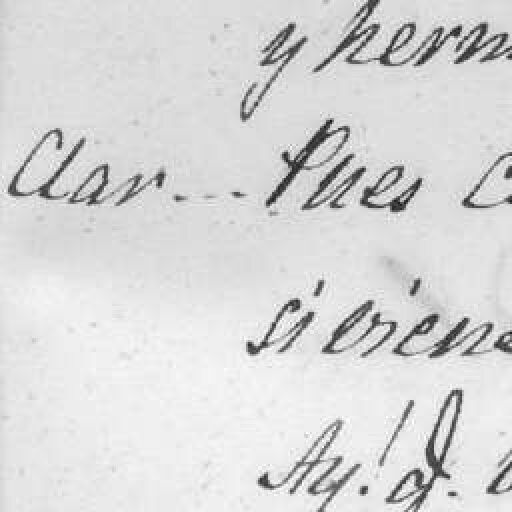 y herm
Clar... Pues c
si viene
Ay! d.